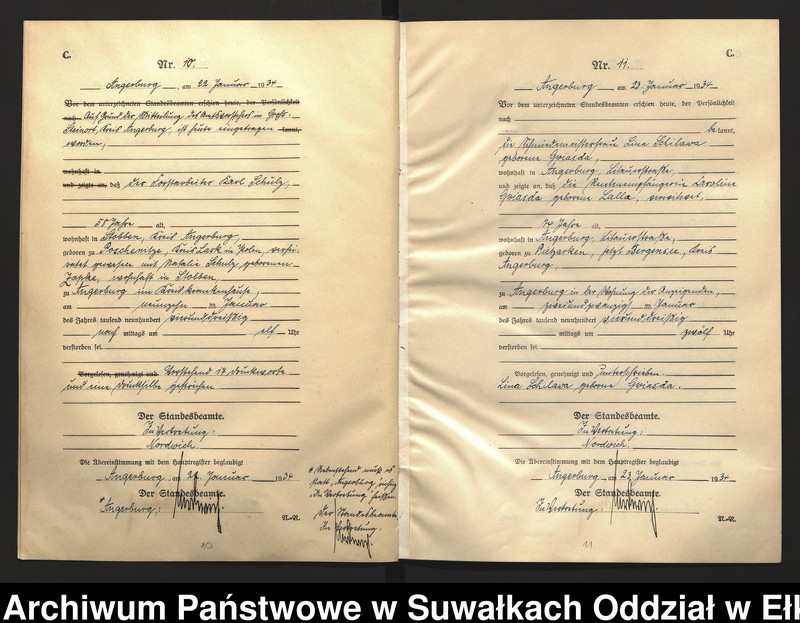 C.
Nr. 10.
Angerburg, am 22. Januar 1934
Vor dem unterzeichneten Standesbeamten erschien heute, der Persönlichkeit
nach Auf Grund der Mitteilung des Amtsvorstehers in Groß-
Steinort, Kreis Angerburg, ist heute eingetragen kannt,
worden,
wohnhaft in
und zeigte an, daß der Forstarbeiter Karl Schulz,
55 Jahre alt,
wohnhaft in Stobben, Kreis Angerburg,
geboren zu Kreis Lask in Polen, verhei-
ratet gewesen mit Natalie Schulz geborenen
wohnhaft in Stobben,
zu Angerburg im Kreiskrankenhause,
am neunzehn ten Januar
des Jahres tausend neunhundert vierunddreißig
nach mittags um elf Uhr
verstorben sei.
Vorgelesen, genehmigt und Vorstehend 12 Druckworte
und eine Drucksilbe gestrichen
Der Standesbeamte.
In Vertretung:
Nordwich.
Die Übereinstimmung mit dem Hauptregister beglaubigt
Angerburg, am 22. Januar 1934
Der Standesbeamte.
Angerburg:
Nebenstehend muß es
statt "Angerburg" richtig
"In Vertretung" heißen.
Der Standesbeamte.
In Vertretung:
10
C.
Nr. 11.
Angerburg, am 23. Januar 1934
Vor dem unterzeichneten Standesbeamten erschien heute, der Persönlichkeit
nach
be kannt,
die Schmiedemeisterfrau Lina Schilawa
geborene Gwiasda,
wohnhaft in Angerburg, Litauerstraße,
und zeigte an, daß die Rentenempfängerin Karoline
Gwiasda geborene Lalla, verwitwet,
74 Jahre alt,
wohnhaft in Angerburg, Litauerstraße,
geboren zu Pietzarken, jetzt Bergensee, Kreis
Angerburg,
zu Angerburg in der Wohnung der Anzeigenden,
am zweiundzwanzig ten Januar
des Jahres tausend neunhundert vierunddreißig
mittags um zwölf Uhr
verstorben sei.
Vorgelesen, genehmigt und unterschrieben.
Lina Schilawa geborene Gwiasda.
Der Standesbeamte.
In Vertretung:
Nordwich.
Die Übereinstimmung mit dem Hauptregister beglaubigt
Angerburg, am 23. Januar 1934
Der Standesbeamte.
In Vertretung:
11
Archiwum Państwowe w Suwałkach Oddział w Ełk